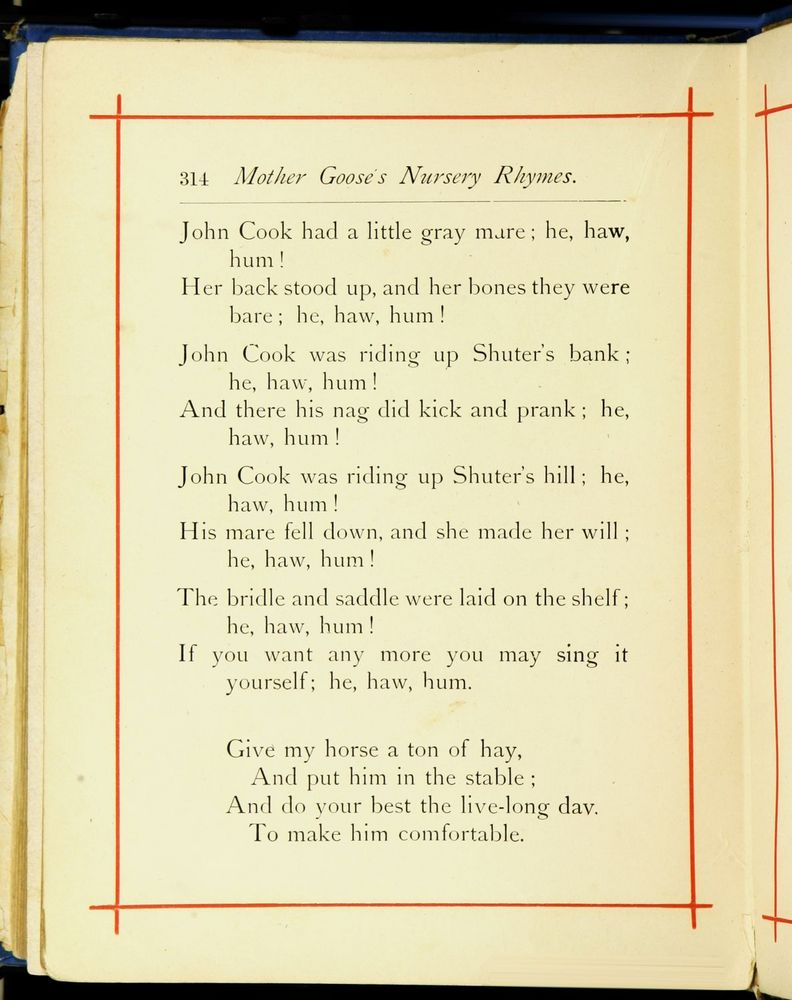 314 Mother Goose's Nursery Rhymes.
John Cook had a little gray mare; he, haw,
hum!
Her back stood up, and her bones they were
bare; he, haw, hum!
John Cook was riding up Shuter's bank;
he, haw, hum!
And there his nag did kick and prank; he,
haw, hum!
John Cook was riding up Shuter's hill; he,
haw, hum!
His mare fell down, and she made her will;
he, haw, hum!
The bridle and saddle were laid on the shelf;
he, haw, hum!
If you want any more you may sing it
yourself; he, haw, hum.
Give my horse a ton of hay,
And put him in the stable;
And do your best the live-long day.
To make him comfortable.